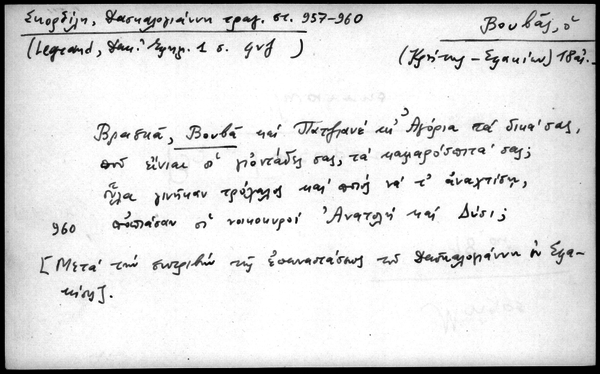 Σκορδίλη, Δασκαλογιάννη τραγ. στ. 957-960
(Legrand, Δακ. 1 σ.
Βουβᾶς, ὁ
(Κρήτης - Σφακίων) 18 αἰ.
Βρασκά, Βουβᾶ καὶ Πατσιανὲ κι' Ἀγόρια τὰ δικά σας,
ποῦ εἶναι οἱ γιοντάδες σας, τὰ καμαρόσπιτά σας;
ὅλα γινῆκαν τράχαλος καὶ ποιός νά τ' ἀναχτίσῃ,
960 ποῦπᾶσαν οἱ νοικοκυροί Ἀνατολή καὶ Δύσι;
[Μετὰ τὴν συντριβὴν τῆς ἐπαναστάσεως τοῦ Δασκαλογιάννη ἐν Σφα-
κίοις].